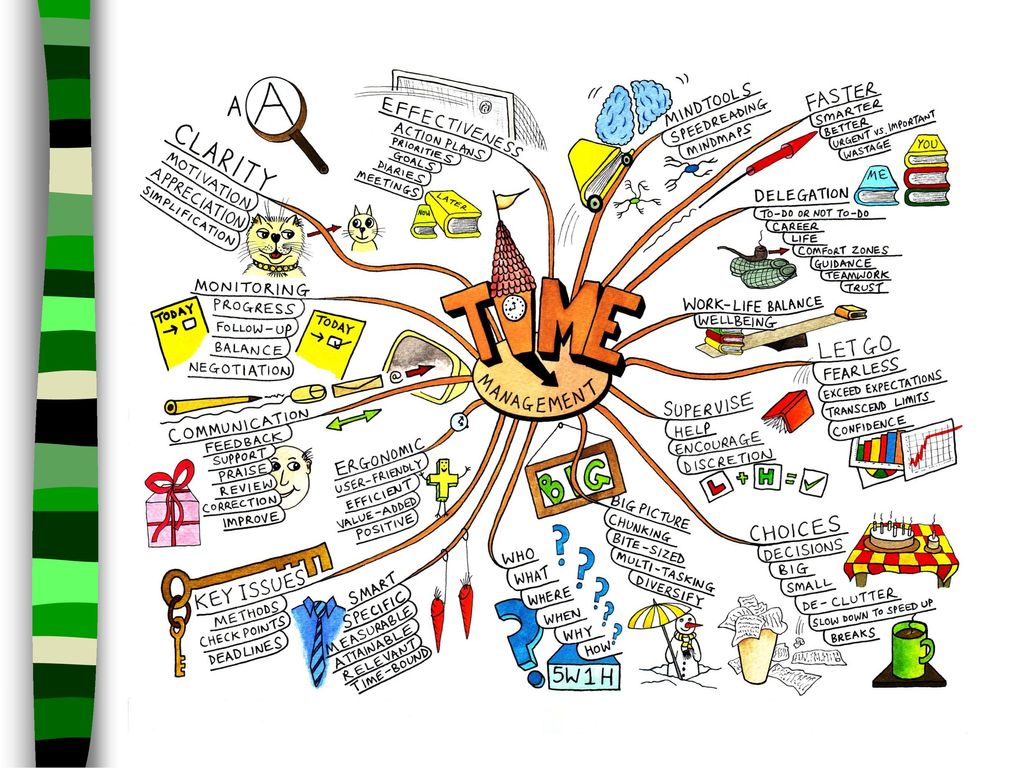 TIME
MANAGEMENT
A
A
CLARITY
MOTIVATION
APPRECIATION
SIMPLIFICATION
EFFECTIVENESS
ACTION PLANS
PRIORITIES
GOALS
DIARIES
MEETINGS
NOW
LATER
MINDTOOLS
SPEEDREADING
MINDMAPS
FASTER
SMARTER
BETTER
URGENT VS. IMPORTANT
WASTAGE
YOU
ME
DELEGATION
TO-DO OR NOT TO-DO
CAREER
LIFE
COMFORT ZONES
GUIDANCE
TEAMWORK
TRUST
WORK-LIFE BALANCE
WELLBEING
LET GO
FEARLESS
EXCEED EXPECTATIONS
TRANSCEND LIMITS
CONFIDENCE
SUPERVISE
HELP
ENCOURAGE
DISCRETION
L + H = ✓
CHOICES
DECISIONS
BIG
SMALL
DE-CLUTTER
SLOW DOWN TO SPEED UP
BREAKS
BIG
BIG PICTURE
CHUNKING
BITE-SIZED
MULTI-TASKING
DIVERSIFY
WHO
WHAT
WHERE
WHEN
WHY
HOW
? ? ? ? ? ?
5W1H
SMART
SPECIFIC
MEASURABLE
ATTAINABLE
RELEVANT
TIME-BOUND
KEY ISSUES
METHODS
CHECK POINTS
DEADLINES
ERGONOMIC
USER-FRIENDLY
EFFICIENT
VALUE-ADDED
POSITIVE
COMMUNICATION
FEEDBACK
SUPPORT
PRAISE
REVIEW
CORRECTION
IMPROVE
@
MONITORING
PROGRESS
FOLLOW-UP
BALANCE
NEGOTIATION
TODAY
TODAY